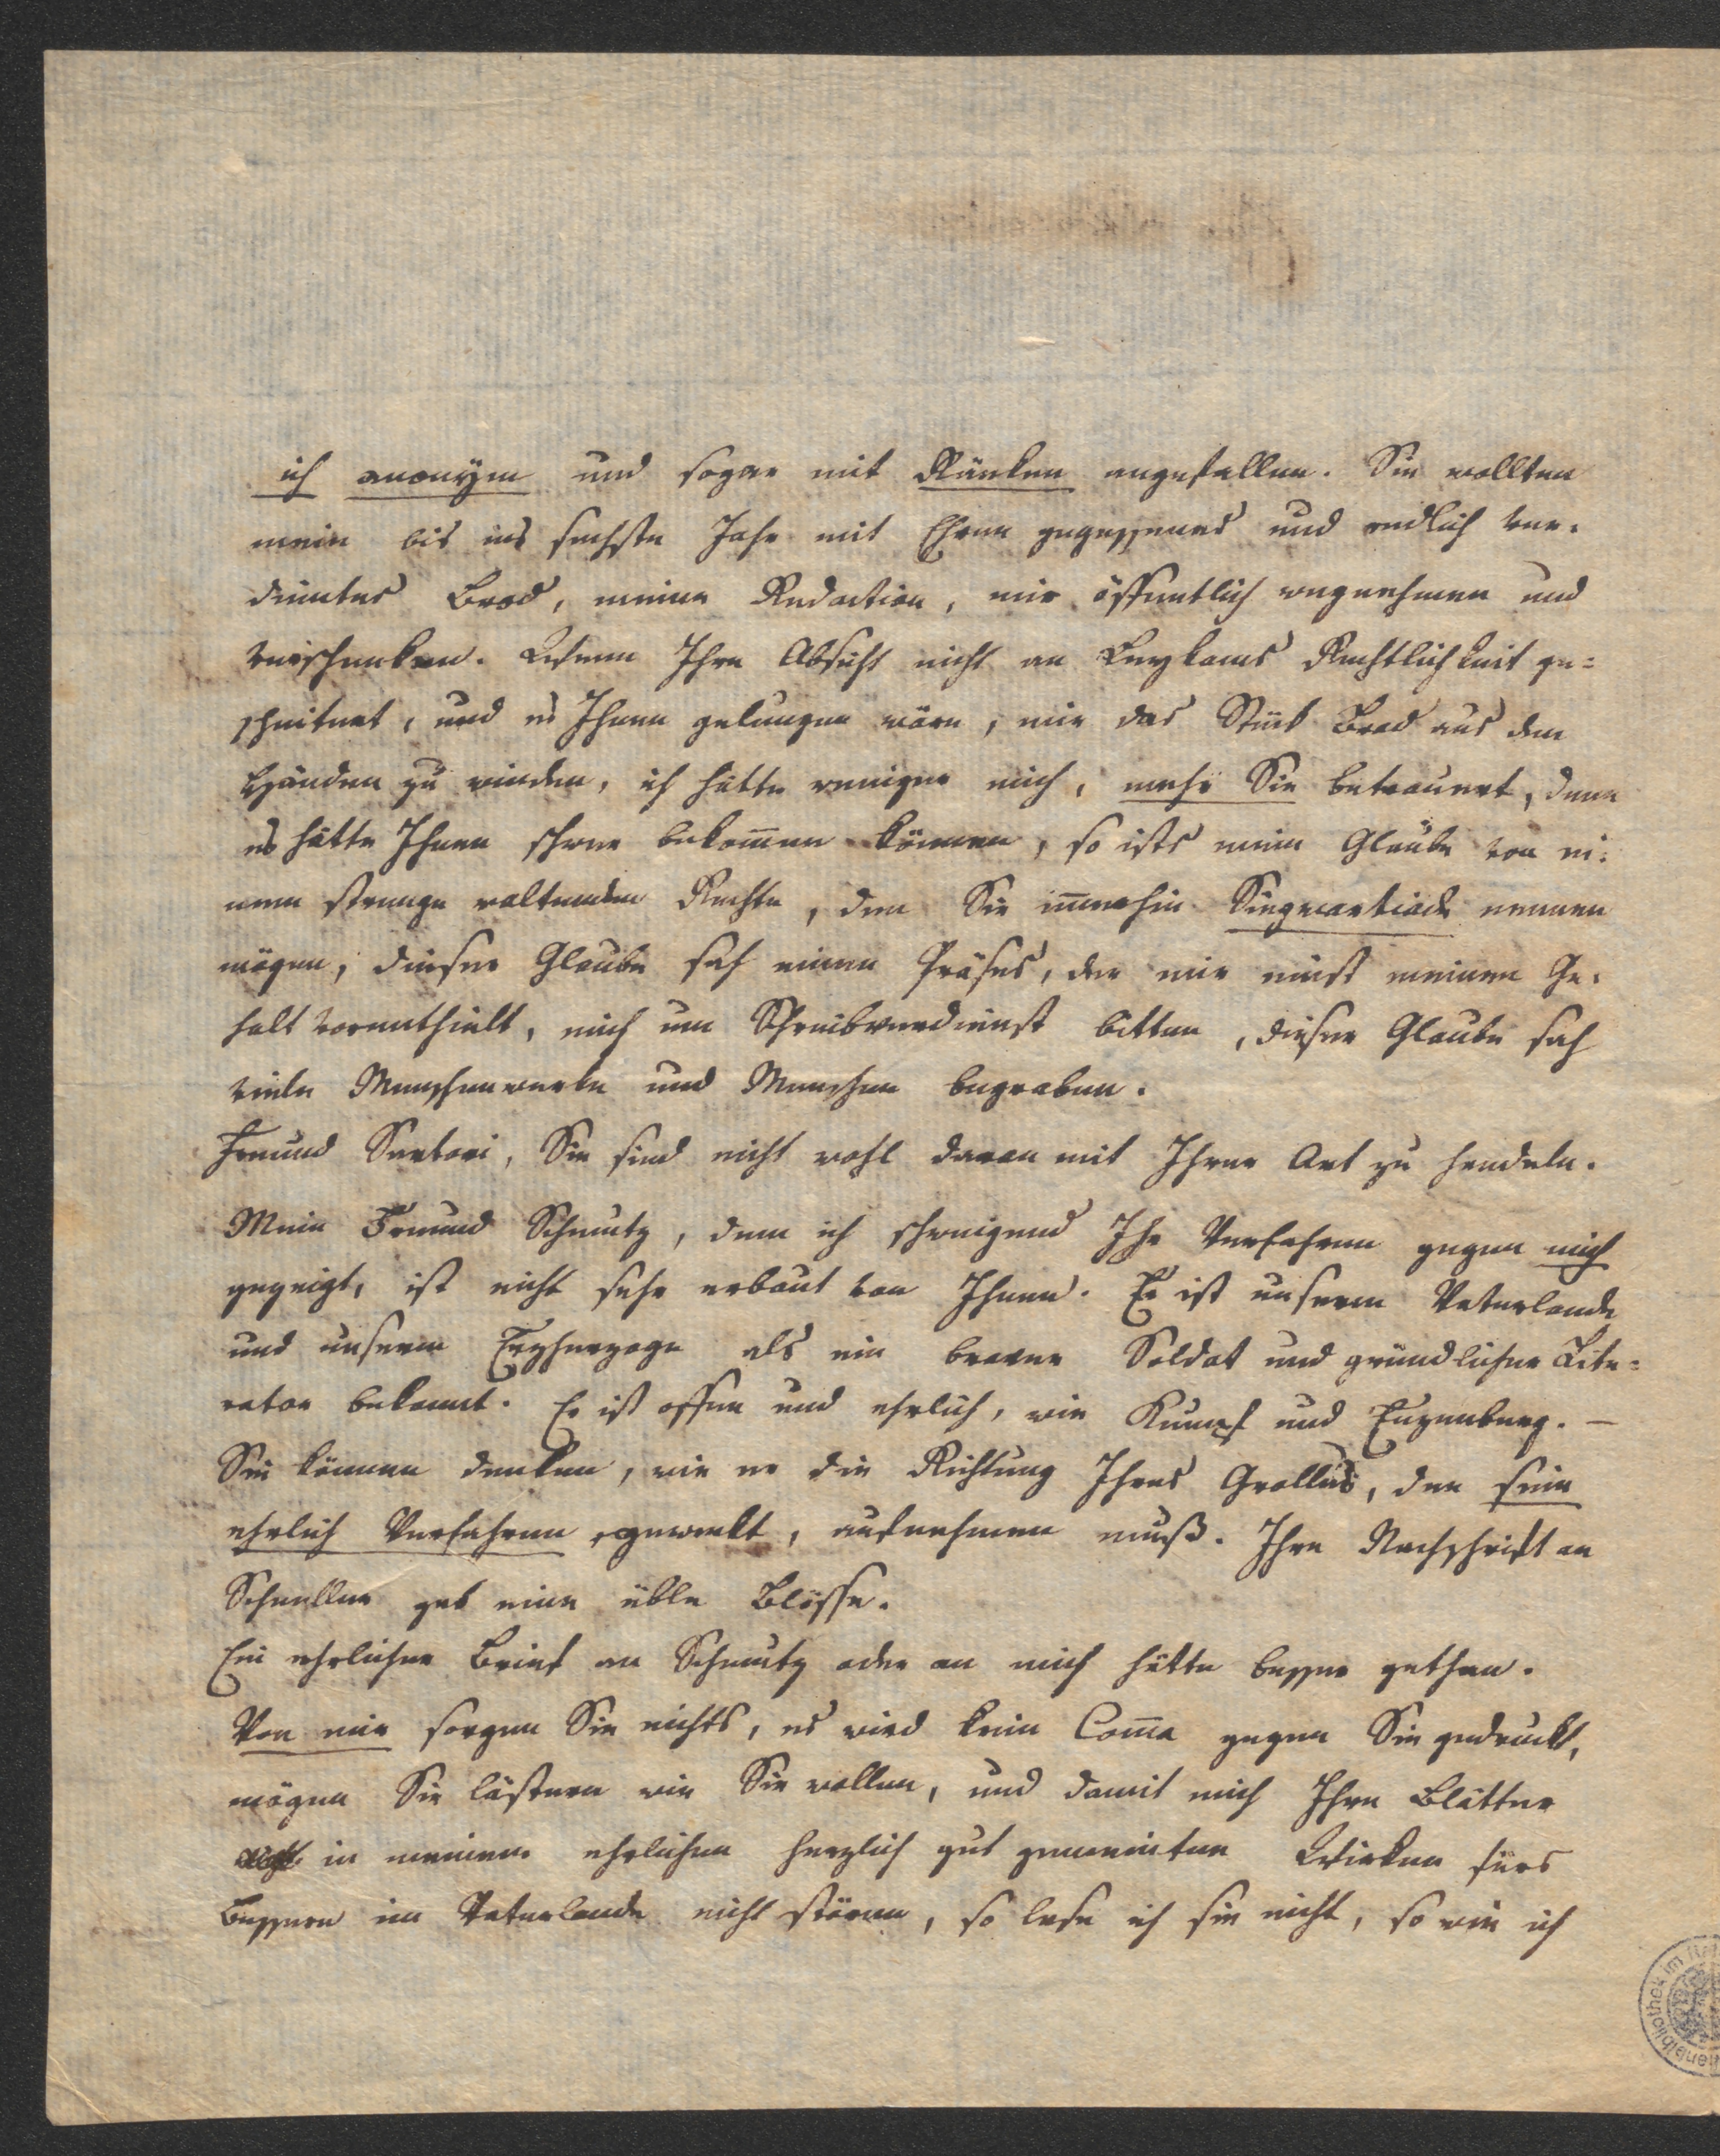 ich anonym und sogar mit Ränken angefallen. Sie wollten
mein bis ins sechste Jahr mit Ehren gegessenes und redlich ver-
dientes Brod, meine Redaction, mir öffentlich wegnehmen und
verschenken. Wenn Ihre Absicht nicht an Leykams Rechtlichkeit ge=
scheitert, und es Ihnen gelungen wäre, mir das Stück Brod aus den
Händen zu winden, ich hätte weniger mich, mehr Sie betrauert, denn
es hätte Ihnen schwer bekom̄en können, so ists mein Glaube von ei-
nem strenge waltenden Rechte, den Sie im̄erhin Siegwartiade nennen
mögen, dieser Glaube sah einen Präses, der mir einst meinen Ge-
halt vorenthielt, mich um Schreibverdienst bitten, dieser Glaube sah
viele Menschenwerke und Menschen begraben.
Freund Sartori, Sie sind nicht wohl daran mit Ihrer Art zu handeln.
Mein Freund Schmutz, dem ich schweigend Ihr Verfahren gegen mich
gezeigt, ist nicht sehr erbaut von Ihnen. Er ist unserem Vaterlande
und unserem Erzherzoge als ein braver Soldat und gründlicher Lite=
rator bekannt. Er ist offen und ehrlich, wie Kumpf und Enzenberg. —
Sie können denken, wie er die Richtung Ihres Grolles, den sein
ehrlich Verfahren geweckt, aufnehmen muß. Ihre Nachschrift an
Schneller gab eine üble Blösse.
Ein ehrlicher Brief an Schmutz oder an mich hätte besser gethan.
Von mir sorgen Sie nichts, es wird kein Com̄a gegen Sie gedruckt,
mögen Sie lästern wie Sie wollen, und damit mich Ihre Blätter
in meinem ehrlichen herzlich gut gemeinten Wirken fürs
Bessere im Vaterlande nicht stören, so lese ich sie nicht, so wie ich